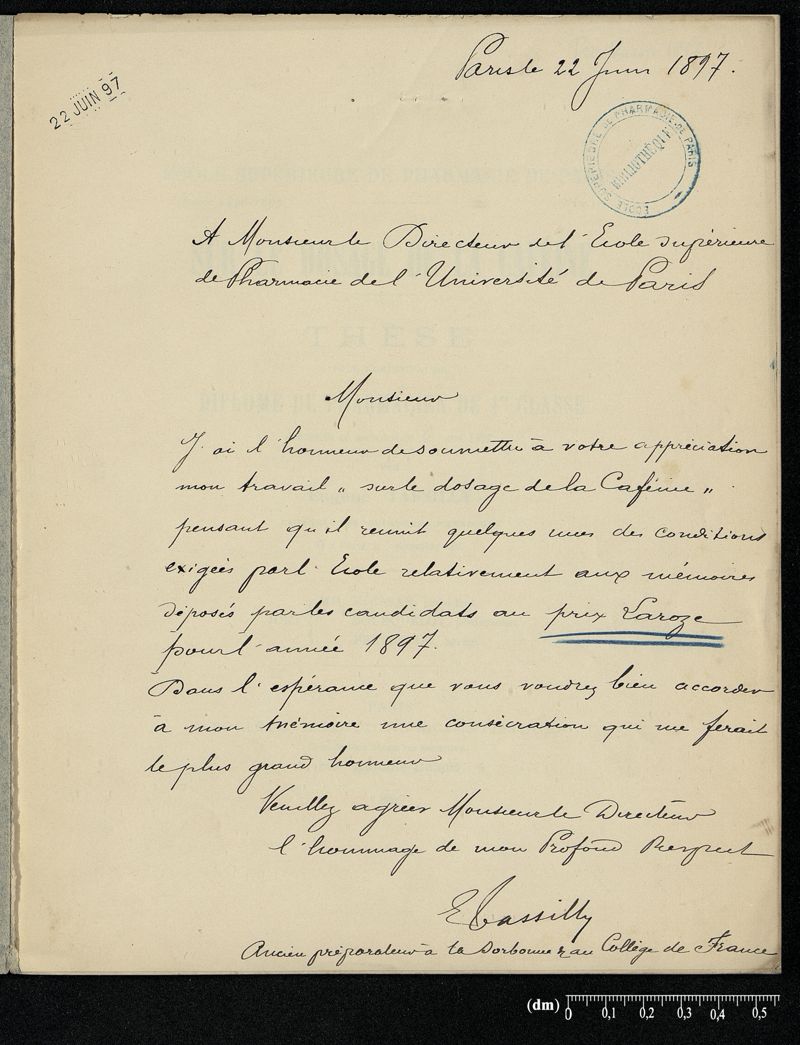 Paris le 22 Juin 1897.
22 JUIN 97
ÉCOLE SUPÉRIEURE DE PHARMACIE DE PARIS
BIBLIOTHÈQUE
A Monsieur le Directeur de l'Ecole supérieure
de Pharmacie de l'Université de Paris
THÈSE
DIPLOME DE PHARMACIEN DE 1re CLASSE
Monsieur
J'ai l'honneur de soumettre à votre appréciation
mon travail " sur le dosage de la Caféine "
pensant qu'il réunit quelques unes des conditions
exigées par l'Ecole relativement aux mémoires
déposés par les candidats au prix Laroze
pour l'année 1897.
Dans l'espérance que vous voudrez bien accorder
à mon mémoire une consécration qui me ferait
le plus grand honneur
Veuillez agréer Monsieur le Directeur
l'hommage de mon Profond Respect
E Tassilly
Ancien préparateur à la Sorbonne & au Collège de France
(dm) 0 0,1 0,2 0,3 0,4 0,5